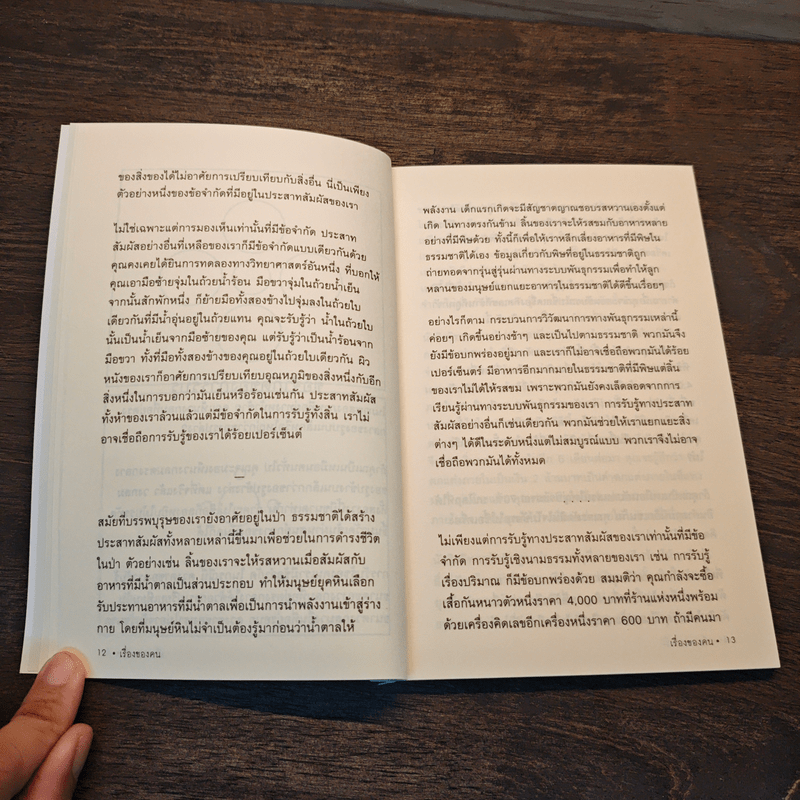 ของสิ่งของได้ไม่อาศัยการเปรียบเทียบกับสิ่งอื่น นี่เป็นเพียง
ตัวอย่างหนึ่งของข้อจำกัดที่มีอยู่ในประสาทสัมผัสของเรา
ไม่ใช่เฉพาะแต่การมองเห็นเท่านั้นที่มีข้อจำกัด ประสาท
สัมผัสอย่างอื่นที่เหลือของเราก็มีข้อจำกัดแบบเดียวกันด้วย
คุณคงเคยได้ยินการทดลองทางวิทยาศาสตร์อันหนึ่ง ที่บอกให้
คุณเอามือซ้ายจุ่มในถ้วยน้ำร้อน มือขวาจุ่มในถ้วยน้ำเย็น
จากนั้นสักพักหนึ่ง ก็ย้ายมือทั้งสองข้างไปจุ่มลงในถ้วยใบ
เดียวกันที่มีน้ำอุ่นอยู่ในถ้วยแทน คุณจะรับรู้ว่า น้ำในถ้วยใบ
นั้นเป็นน้ำเย็นจากมือซ้ายของคุณ แต่รับรู้ว่าเป็นน้ำร้อนจาก
มือขวา ทั้งที่มือทั้งสองข้างของคุณอยู่ในถ้วยใบเดียวกัน ผิว
หนังของเราก็อาศัยการเปรียบเทียบอุณหภูมิของสิ่งหนึ่งกับอีก
สิ่งหนึ่งในการบอกว่ามันเย็นหรือร้อนเช่นกัน ประสาทสัมผัส
ทั้งห้าของเราล้วนแล้วแต่มีข้อจำกัดในการรับรู้ทั้งสิ้น เราไม่
อาจเชื่อถือการรับรู้ของเราได้ร้อยเปอร์เซ็นต์
—
สมัยที่บรรพบุรุษของเรายังอาศัยอยู่ในป่า ธรรมชาติได้สร้าง
ประสาทสัมผัสทั้งหลายเหล่านี้ขึ้นมาเพื่อช่วยในการดำรงชีวิต
ในป่า ตัวอย่างเช่น ลิ้นของเราจะให้รสหวานเมื่อสัมผัสกับ
อาหารที่มีน้ำตาลเป็นส่วนประกอบ ทำให้มนุษย์ยุคหินเลือก
รับประทานอาหารที่มีน้ำตาลเพื่อเป็นการนำพลังงานเข้าสู่ร่าง
กาย โดยที่มนุษย์หินไม่จำเป็นต้องรู้มาก่อนว่าน้ำตาลให้
12 • เรื่องของคน
พลังงาน เด็กแรกเกิดจะมีสัญชาตญาณชอบรสหวานเองตั้งแต่
เกิด ในทางตรงกันข้าม ลิ้นของเราจะให้รสขมกับอาหารหลาย
อย่างที่มีพิษด้วย ทั้งนี้ก็เพื่อให้เราหลีกเลี่ยงอาหารที่มีพิษใน
ธรรมชาติได้เอง ข้อมูลเกี่ยวกับพิษที่อยู่ในธรรมชาติถูก
ถ่ายทอดจากรุ่นสู่รุ่นผ่านทางระบบพันธุกรรมเพื่อทำให้ลูก
หลานของมนุษย์แยกแยะอาหารในธรรมชาติได้ดีขึ้นเรื่อยๆ
อย่างไรก็ตาม กระบวนการวิวัฒนาการทางพันธุกรรมเหล่านี้
ค่อยๆ เกิดขึ้นอย่างช้าๆ และเป็นไปตามธรรมชาติ พวกมันจึง
ยังมีข้อบกพร่องอยู่มาก และเราก็ไม่อาจเชื่อถือพวกมันได้ร้อย
เปอร์เซ็นต์ มีอาหารอีกมากมายในธรรมชาติที่มีพิษแต่ลิ้น
ของเราไม่ได้ให้รสขม เพราะพวกมันยังคงเล็ดลอดจากการ
เรียนรู้ผ่านทางระบบพันธุกรรมของเรา การรับรู้ทางประสาท
สัมผัสอย่างอื่นก็เช่นเดียวกัน พวกมันช่วยให้เราแยกแยะสิ่ง
ต่างๆ ได้ดีในระดับหนึ่งแต่ไม่สมบูรณ์แบบ พวกเราจึงไม่อาจ
เชื่อถือพวกมันได้ทั้งหมด
. . . .
ไม่เพียงแต่การรับรู้ทางประสาทสัมผัสของเราเท่านั้นที่มีข้อ
จำกัด การรับรู้เชิงนามธรรมทั้งหลายของเรา เช่น การรับรู้
เรื่องปริมาณ ก็มีข้อบกพร่องด้วย สมมติว่า คุณกำลังจะซื้อ
เสื้อกันหนาวตัวหนึ่งราคา 4,000 บาทที่ร้านแห่งหนึ่งพร้อม
ด้วยเครื่องคิดเลขอีกเครื่องหนึ่งราคา 600 บาท ถ้ามีคนมา
เรื่องของคน • 13